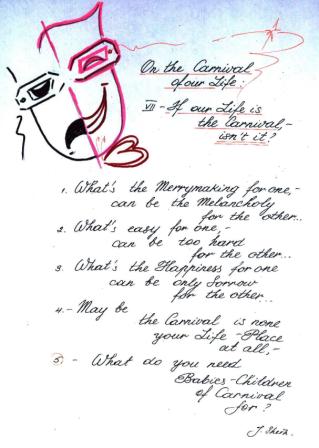 On the Carnival
of our Life:
VII - If our Life is
the Carnival,-
isn't it?
1. What's the Merrymaking for one,-
can be the Melancholy
for the other...
2. What's easy for one,-
can be too hard
for the other...
3. What's the Happiness for one
can be only Sorrow
for the other...
4.- May be
the Carnival is none
your Life-Place
at all,-
5. - What do you need
Babies-Children
of Carnival
for?